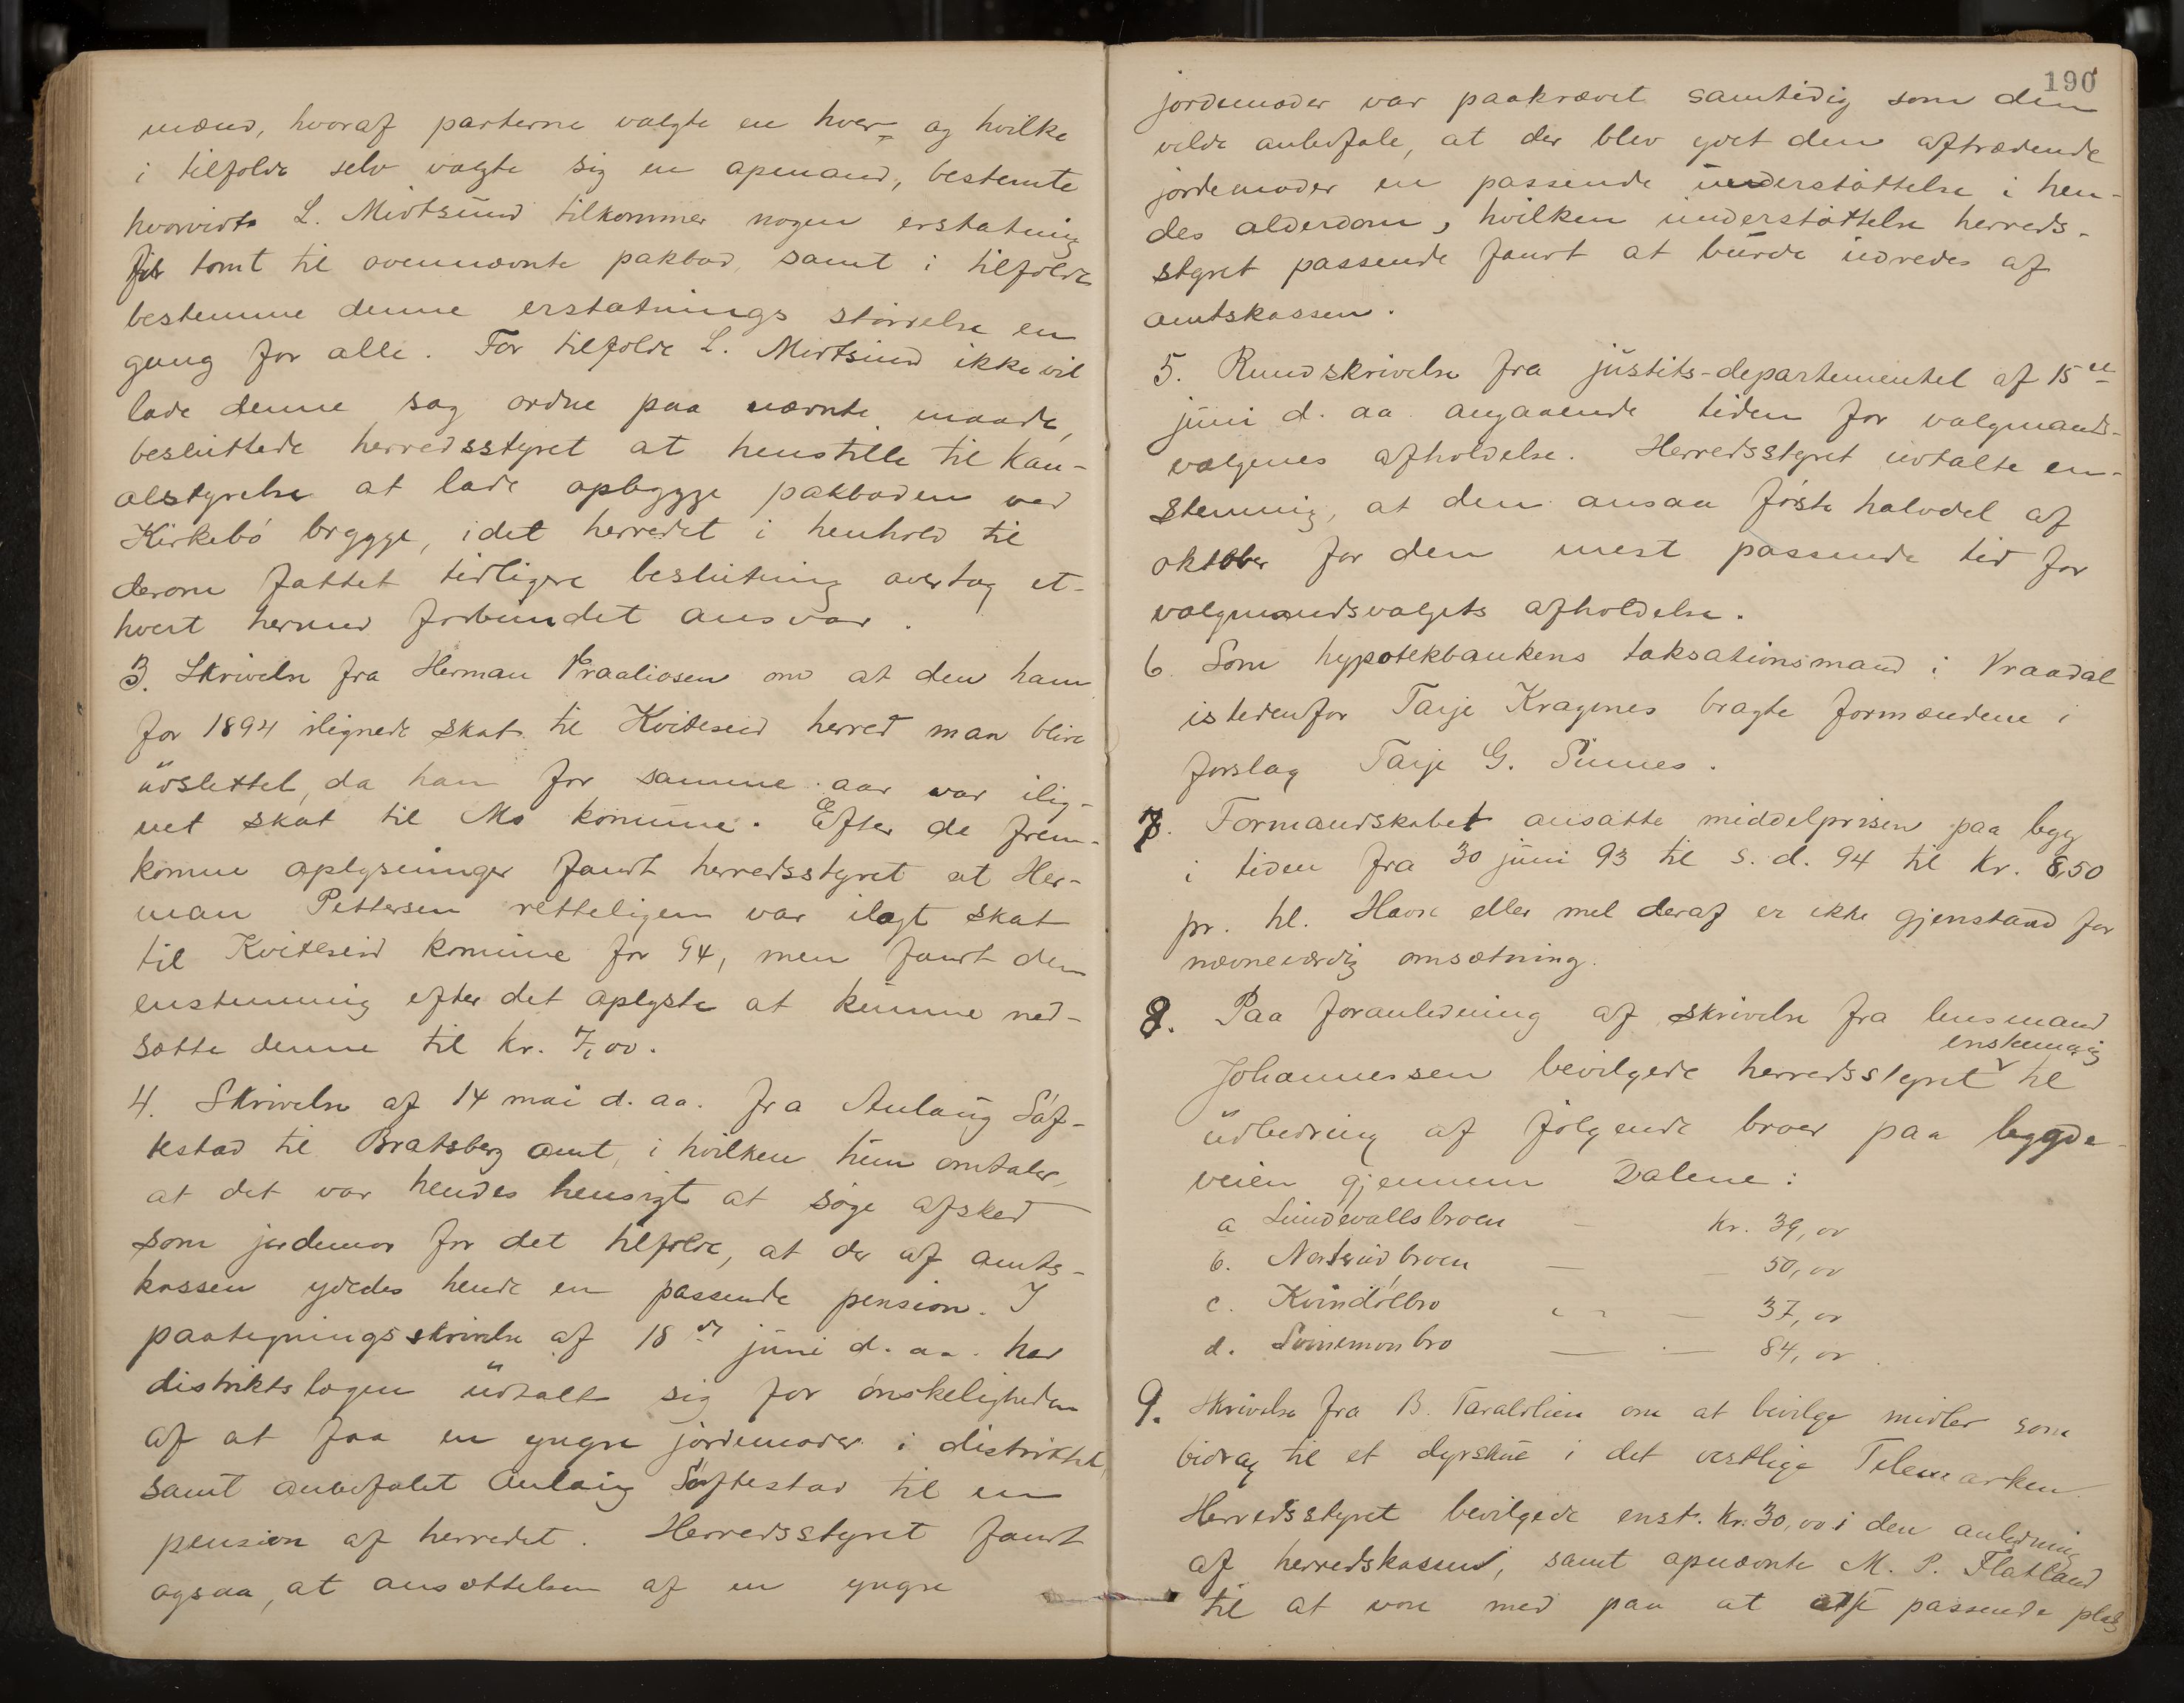 mænd, hvoraf parterne valgte en hver, og hvilke
i tilfælde selv valgte sig en opmand, bestemte
hvorvidt L. Midtsund tilkommer nogen erstatning
for tomt til ovennævnte pakbod, samt i tilfælde
bestemme denne erstatnings størrelse en
gang for alle. For tilfælde L. Midtsund ikke vil
lade denne sag ordne paa nævnte maade,
besluttede herredsstyret at henstille til kan-
alstyrelse at lade opbygge pakboden ved
Kirkebø brygge, idet herredet i henhold til
derom fattet tidligere beslutning overtog et-
hvert hermed forbundet ansvar.
3. Skrivelse fra Herman Vraaliosen om at den ham
for 1894 ilignede skat til Kviteseid herred maa blive
udslettet, da han for samme aar var ilig-
net skat til Mo komune. Efter de frem-
komne oplysninger fandt herredsstyret at Her-
man Pettersen retteligen var ilagt skat
til Kviteseid komune for 94, men fandt den
enstemmig efter det oplyste at kunne ned-
sætte denne til kr. 7,00.
4. Skrivelse af 14 mai d. aa. fra Anlaug Søf-
testad til Bratsberg amt, i hvilken hun omtaler,
at det var hendes hensigt at søge afsked
som jordemor for det tilfælde, at der af amts-
kassen ydedes hende en passende pension. I
paategningsskrivelse af 18de juni d. aa. har
distriktslægen udtalt sig for ønskeligheden
af at faa en yngre jordemoder i distriktet,
samt anbefalet Anlaug Søftestad til en
pension af herredet. Herredsstyret fandt
ogsaa, at ansættelsen af en yngre
190
jordemoder var paakrævet samtidig som den
vilde anbefale, at der blev ydet den aftrædende
jordemoder en passende understøttelse i hen-
des alderdom, hvilken understøttelse herreds-
styret passende fandt at burde udredes af
amtskassen.
5. Rundskrivelse fra justits-departementet af 15de
juni d. aa. angaaende tiden for valgmands-
valgenes afholdelse. Herredsstyret udtalte en-
stemmig, at den ansaa første halvdel af
oktober for den mest passende tid for
valgmandsvalgets afholdelse.
6. Som hypotekbankens taksationsmand i Vraadal
istedenfor Tarje Kragenes bragte formændene i
forslag Tarje G. Sunnes.
7. Formandskabet ansatte middelprisen paa byg
i tiden fra 30 juni 93 til s. d. 94 til kr. 8,50
pr. hl. Havre eller mel deraf er ikke gjenstand for
nævneværdig omsætning.
8. Paa foranledning af skrivelse fra lensmand
enstemmig
Johannessen bevilgede herredsstyret til
udbedring af følgende broer paa bygde-
veien gjennem Dalene:
a Lundevallsbroen – kr. 39,00
b. Nordsudbroen — – 50,00
c. Kvindølbro „ „ — 37,00
d. Svinemonbro — — 84,00.
9. Skrivelse fra B. Taraldlien om at bevilge midler som
bidrag til et dyrskue i det vestlige Telemarken.
Herredsstyret bevilgede enst. kr. 30,00 i den anledning
af herredskassen, samt opnævnte M. P. Flatland
til at være med paa at passende plads